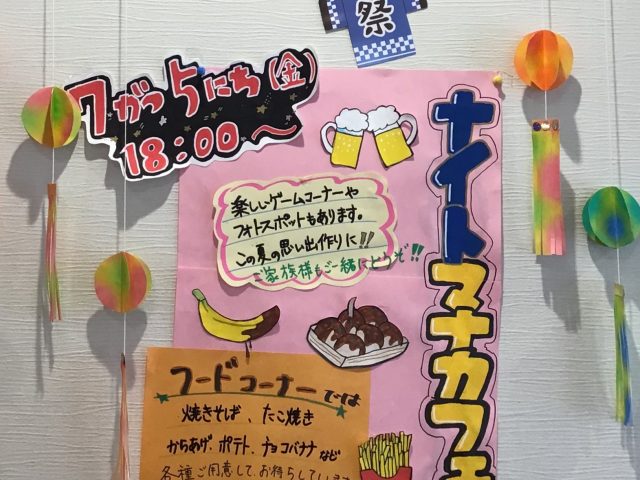 祭
7がつ5にち(金)
18:00～
ナイトマナカフェ
楽しいゲームコーナーや
フォトスポットもあります。
この夏の思い出作りに!!
ご家族様もご一緒にどうぞ!!
フードコーナーでは
焼きそば、たこ焼き
からあげ、ポテト、チョコバナナなど
各種ご用意して、お待ちしています